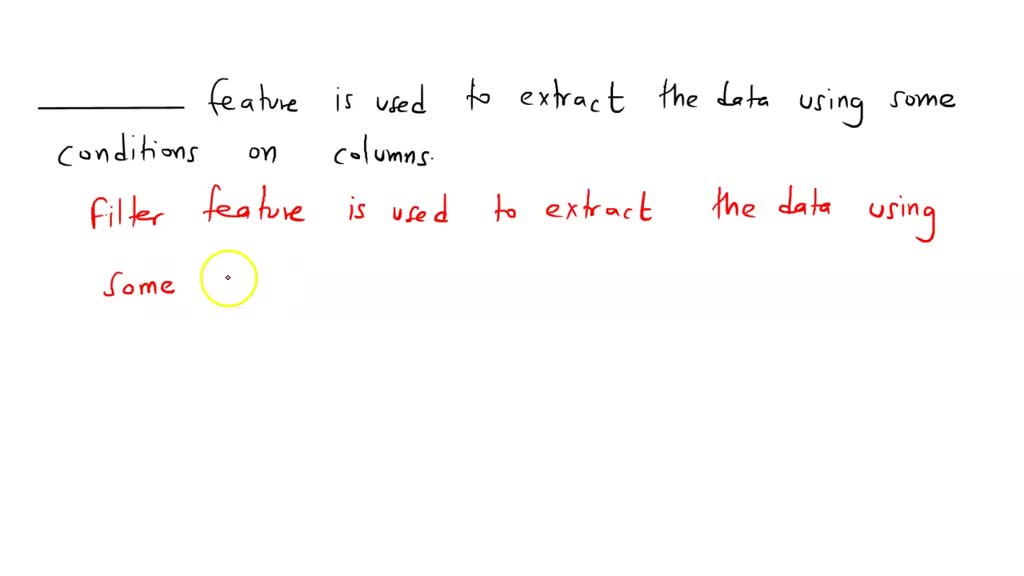 ________ feature is used to extract the data using some
conditions on columns.
Filter feature is used to extract the data using
some